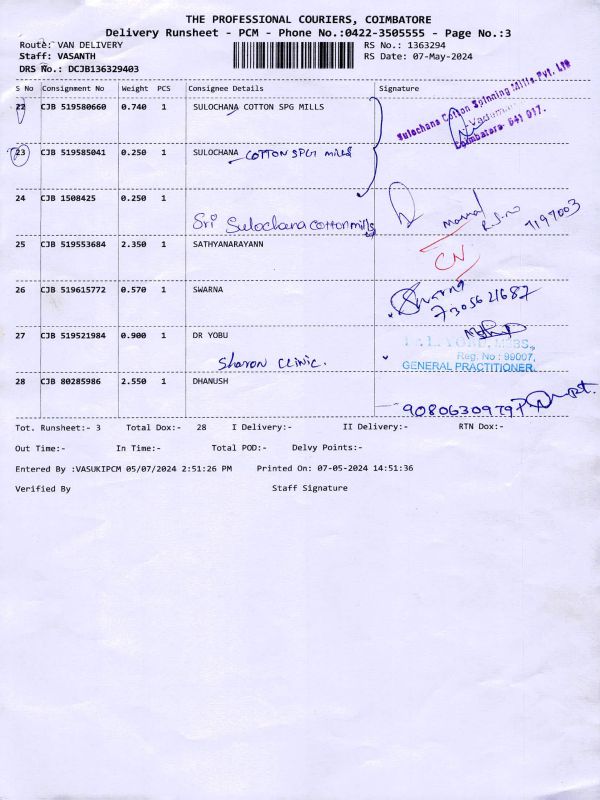 THE PROFESSIONAL COURIERS, COIMBATORE
Delivery Runsheet - PCM - Phone No.:0422-3505555 - Page No.:3
Route: VAN DELIVERY RS No.: 1363294
Staff: VASANTH RS Date: 07-May-2024
DRS No.: DCJB136329403
S No Consignment No Weight PCS Consignee Details Signature
22 CJB 519580660 0.740 1 SULOCHANA COTTON SPG MILLS
Sulochana Cotton Spinning Mills Pvt. Ltd
Coimbatore- 641 017.
23 CJB 519585041 0.250 1 SULOCHANA COTTON SPGT MILLS
24 CJB 1508425 0.250 1
Sri Sulochana cotton mills
7197003
25 CJB 519553684 2.350 1 SATHYANARAYANN CN
26 CJB 519615772 0.570 1 SWARNA Swarna
7305621687
27 CJB 519521984 0.900 1 DR YOBU
Sharon CLINIC.
Reg. No : 99007,
GENERAL PRACTITIONER.
28 CJB 80285986 2.550 1 DHANUSH
9080630979
Tot. Runsheet:- 3 Total Dox:- 28 I Delivery:- II Delivery:- RTN Dox:-
Out Time:- In Time:- Total POD:- Delvy Points:-
Entered By :VASUKIPCM 05/07/2024 2:51:26 PM Printed On: 07-05-2024 14:51:36
Verified By Staff Signature